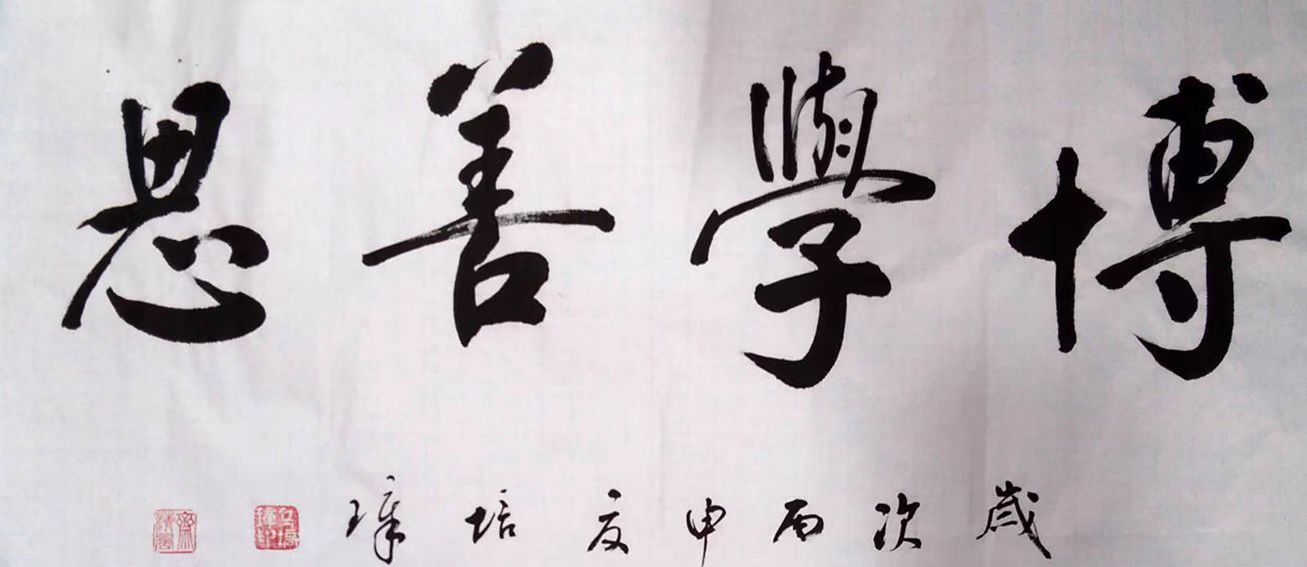 博學善思
歲次丙申夏培璋